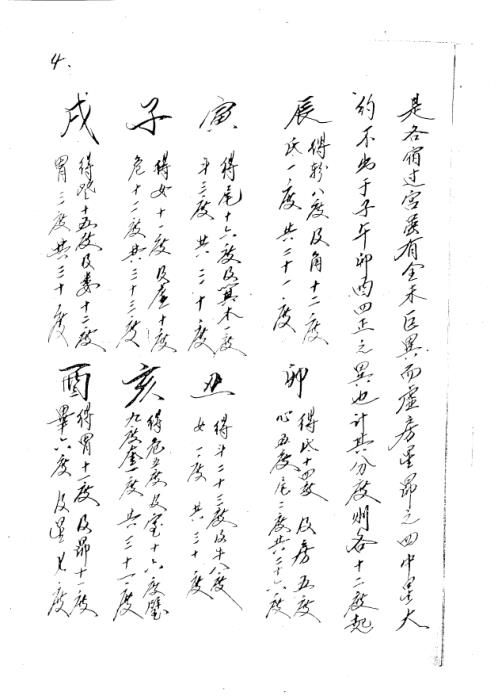 4.
是各宿过宫虽有全禾巨異而虚房星昴之四中星大
约不出于子午卯酉四正之異也计其分度则各十二度起
辰
得軫八度及角十二度
氐一度共二十一度
卯
得氐十四度及房五度
心五度尾二度共二十六度
寅
得尾十六度及箕木一度
斗三度共二十度
丑
得斗二十三度及牛八度
女一度共三十度
子
得女十一度及虚十度
危十二度共三十三度
亥
得危五度及室十六度壁
九度奎一度共三十一度
戌
得奎十五度及娄十二度
胃三度共三十度
酉
得胃十一度及昴十一度
畢六度及星七度